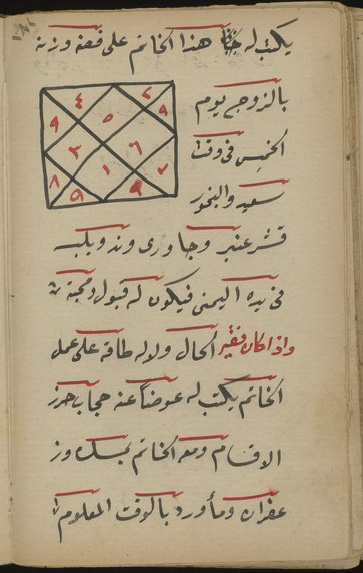 يكتب له هذا الخاتم على فضة وزنة
٤ ٢
٩ ٥ ٩
٣ ٦
٨ ١ ٢
٩ ٥
بالزوجـ يوم
الخميس في وقت
سعيد والبخور
قشر عنبر وجاوري وند ويلبسه
في يده اليمنى فيكون له قبول ومحبة
واذا كان فقير الحال ولا له طاقة على عمل
الخاتم يكتب له عوضاً عنه حجاب حرز
الاقسام ومعه الخاتم بمسك وز
عفران ومأورد بالوقت المعلوم